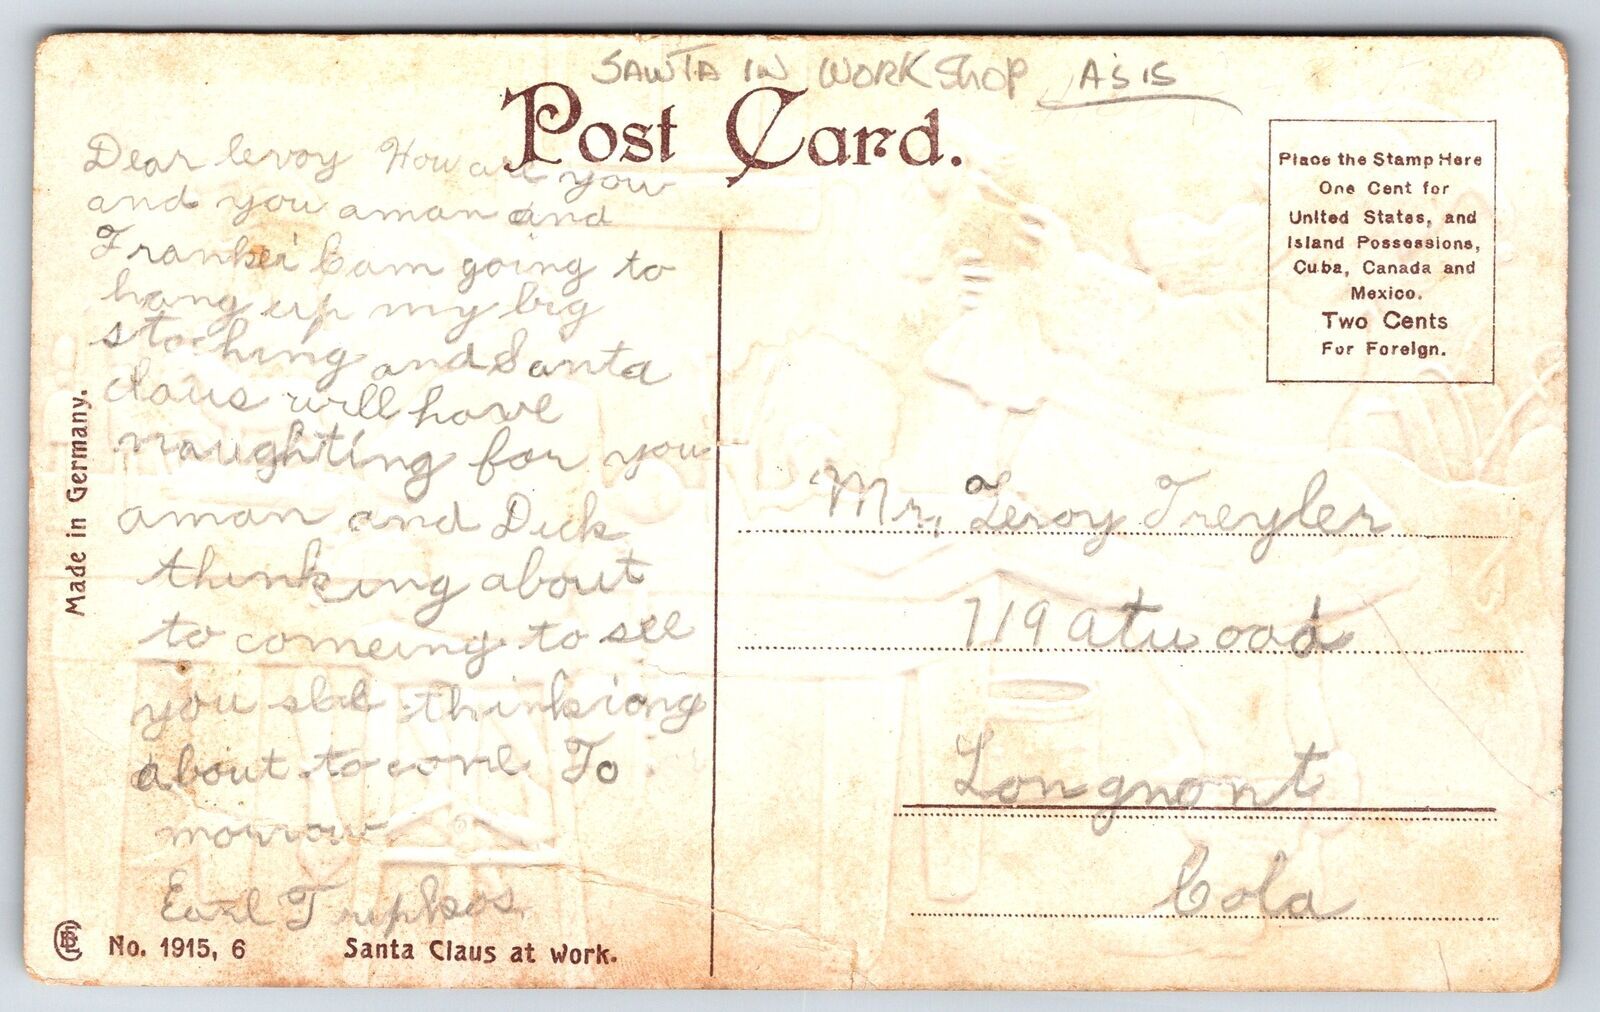 SANTA IN WORK SHOP AS IS
Post Card.
Dear leroy How are you
and you aman and
Frankei I am going to
hang up my big
stocking and Santa
claus will have
naughting for you
aman and Dick
thinking about
to comeing to see
you thinking
about to come To
morrow
Earl
Place the Stamp Here
One Cent for
United States, and
Island Possessions,
Cuba, Canada and
Mexico.
Two Cents
For Foreign.
Mr. Leroy Treyler
719 atwood
Longmont
Cola
Made in Germany.
No. 1915, 6
Santa Claus at Work.